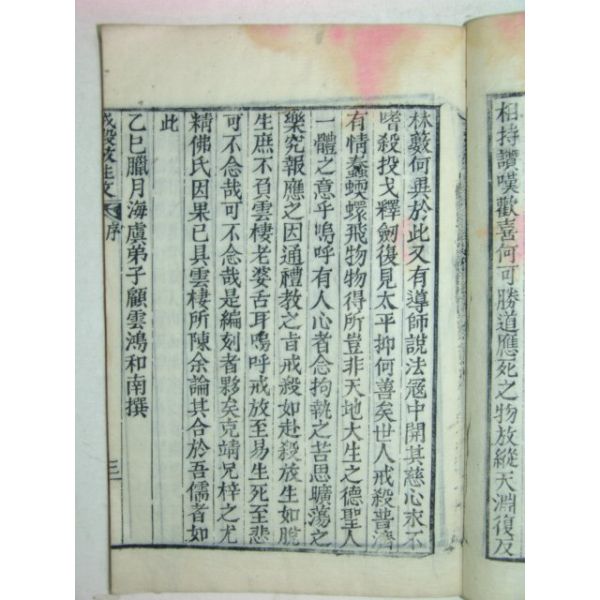 相持讚嘆歡喜何可勝道應死之物放縱天淵復反
林藪何異於此又有導師說法寇中開其慈心永不
嗜殺投戈釋劍復見太平抑何善矣世人戒殺普濟
有情蠢蝡蠉飛物物得所豈非天地大生之德聖人
一體之意乎嗚呼有人心者念拘執之苦思曠蕩之
樂究報應之因通禮教之旨戒殺如赴殺放生如脫
生庶不負雲棲老婆舌耳嗚呼戒放至易生死至悲
可不念哉可不念哉是編刻者夥矣克靖兄梓之尤
精佛氏因果已具雲棲所陳余論其合於吾儒者如
此
乙巳臘月海虞弟子顧雲鴻和南撰
戒殺放生文 序 三